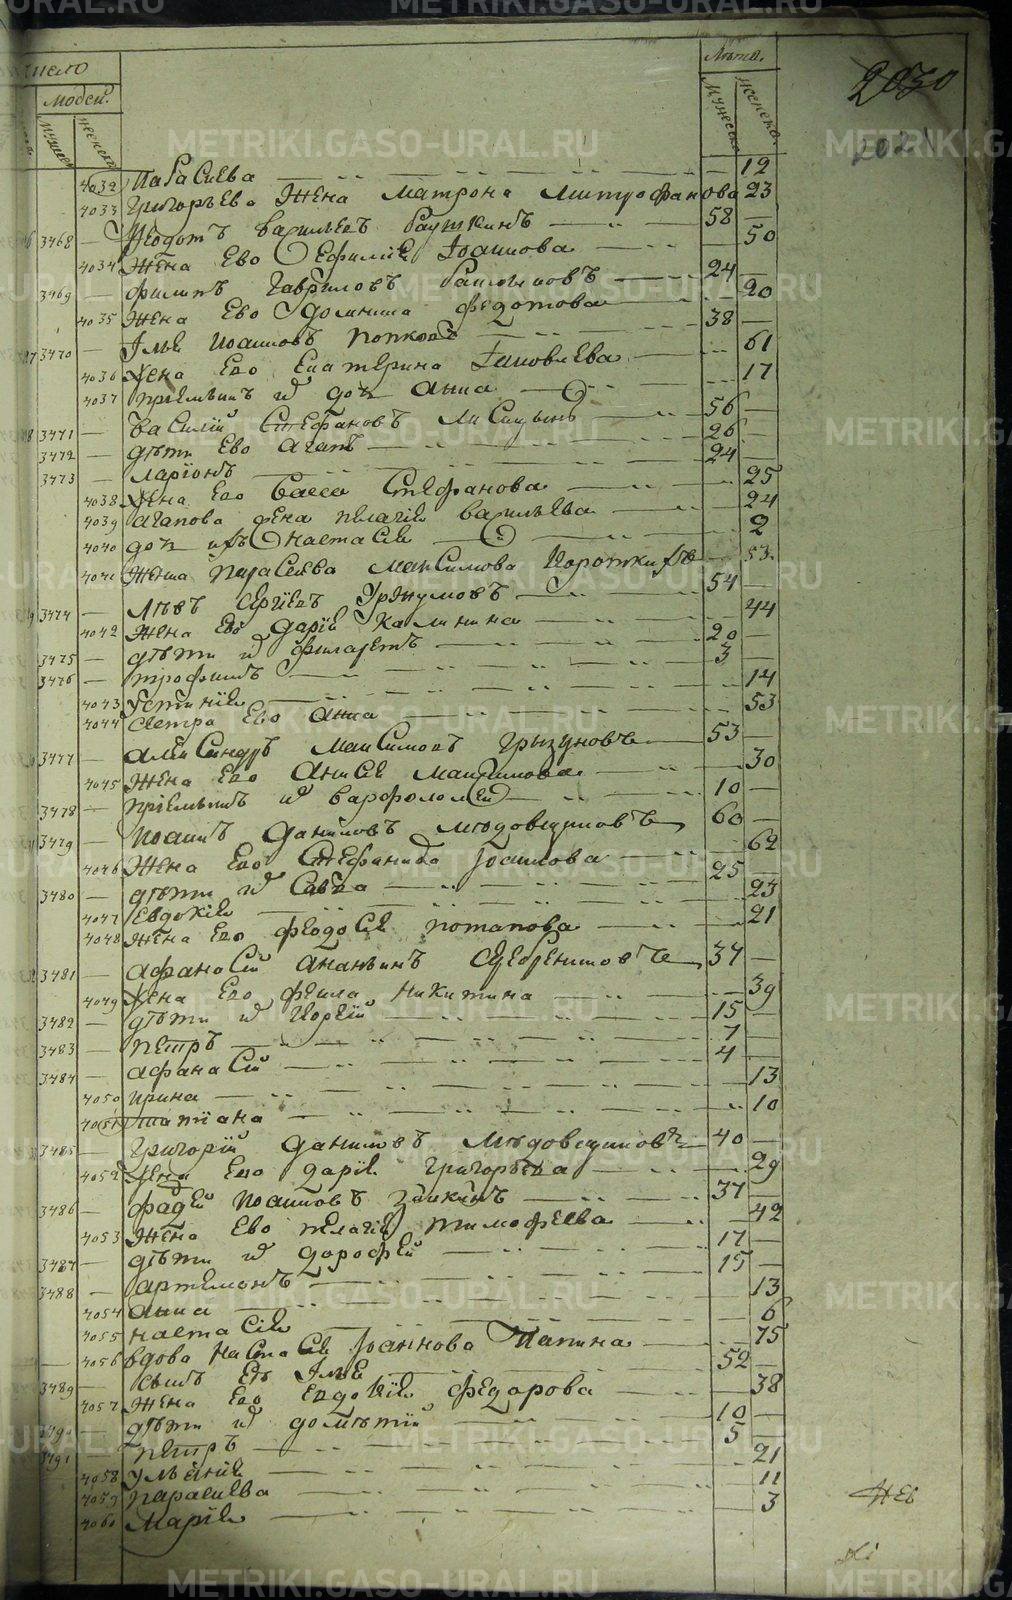 число
Людей.
Мужеск
женска
Лѣта.
Мужеска
женска
2030
2021
4032 Парасꙗева 12
4033 Григорьева Жена Матрона Митрофанова 23
3468 — Федотъ Васильевъ 58 —
4034 Жена Ево Ефимия Іоаннова 50
3469 — Филипъ Гавриловъ 24 —
4035 Жена Ево Домнина Федотова 20
3470 — Ілья Иоанновъ Попковъ 38 —
4036 Жена Ево Екатерина Іаковлева 61
4037 Приемышъ и дочь Анна 17
3471 — Василий Стефановъ Лисицынъ 56 —
3472 — дѣти Ево Агапъ 26 —
3473 — Ларионъ 24 —
4038 Жена Ево Васса Стефанова 25
4039 Агапова жена Пелагия Васильева 24
4040 дочь ихъ Настасия 2
4041 Жена Парасꙗева Максимова Коротких 53
3474 — Левъ Сергеевъ Уржумовъ 54 —
4042 Жена Ево Дария Калинина 44
3475 — дѣти и Филаретъ 20 —
3476 — Трофимъ 3 —
4043 Устиния 14
4044 Сестра Ево Анна 53
3477 — Александръ Максимовъ Грызуновъ 53 —
4045 Жена Ево Анисия Максимова 30
3478 — Приемышъ и Варфоломей 10 —
3479 — Иоаннъ Даниловъ Мѣдовщиковъ 60 —
4046 Жена Ево Стефанида Іоакимова 62
3480 — дѣти и Савва 25 —
4047 Евдокия 23
4048 Жена Ево Феодосия Потапова 21
3481 — Афанасий Ананьинъ Серебрениковъ 37 —
4049 Жена Ево Фекла Никитина 39
3482 — дѣти и Георгий 15 —
3483 — Петръ 7 —
3484 — Афанасий 4 —
4050 Ирина 13
4051 Татиана 10
3485 — Григорий Даниловъ Мѣдовщиковъ 40 —
4052 Жена Ево Дария Григорьева 29
3486 — Фадей Иоанновъ Заикинъ 37 —
4053 Жена Ево Пелагия Тимофеева 42
3487 — дѣти и Дорофей 17 —
3488 — Артемонъ 15 —
4054 Анна 13
4055 Настасия 6
4056 вдова Настасия Іоаннова Папина 75
3489 — Сынъ Еѣ Ілья 52 —
4057 Жена Ево Евдокия Федорова 38
3490 — дѣти и Дометий 10 —
3491 — Петръ 5 —
4058 Ульяния 21
4059 Парасꙗева 11
4060 Мария 3
METRIKI.GASO-URAL.RU